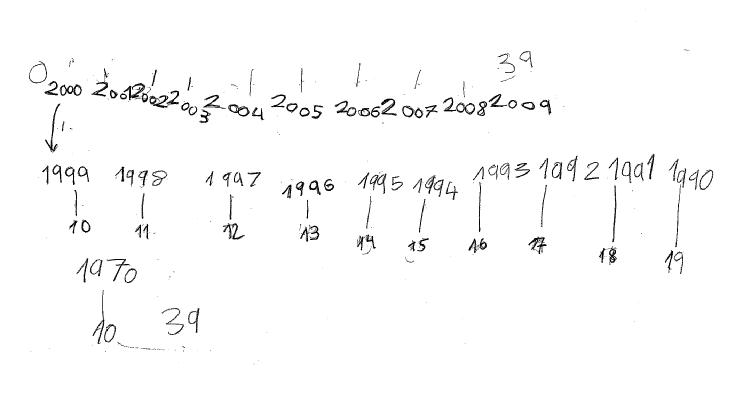 39
0 2000 2001 2002 2003 2004 2005 2006 2007 2008 2009
1.
1999 1998 1997 1996 1995 1994 1993 1992 1991 1990
10 11 12 13 14 15 16 17 18 19
1970
10 39